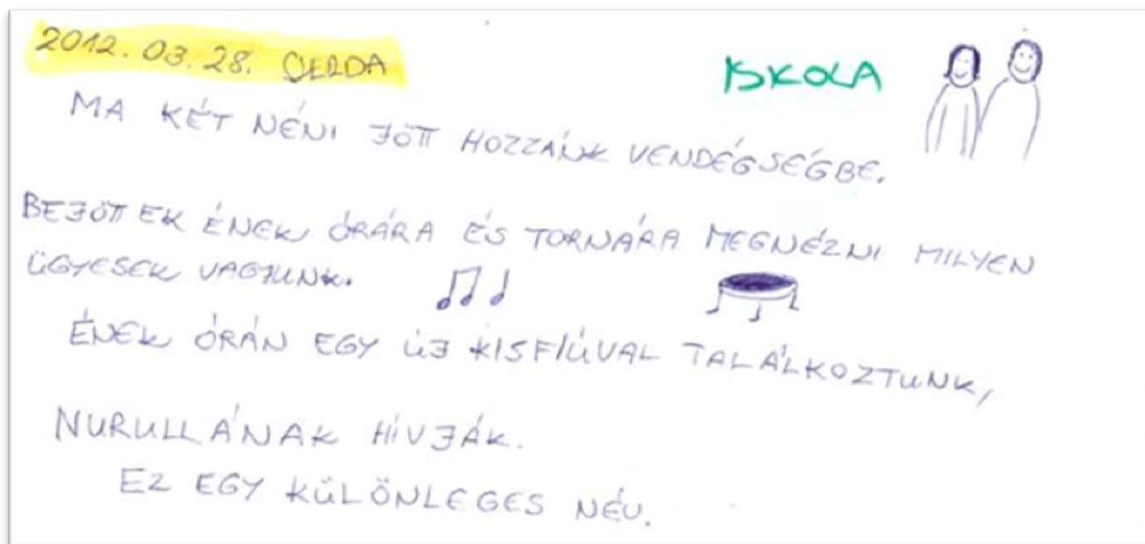 2012.03.28. SZERDA
ISKOLA
MA KÉT NÉNI JÖTT HOZZÁNK VENDÉGSÉGBE.
BEJÖTTEK ÉNEK ÓRÁRA ÉS TORNÁRA MEGNÉZNI MILYEN
ÜGYESEK VAGYUNK.
ÉNEK ÓRÁN EGY ÚJ KISFIÚVAL TALÁLKOZTUNK,
NURULLÁNAK HÍVJÁK.
EZ EGY KÜLÖNLEGES NÉV.